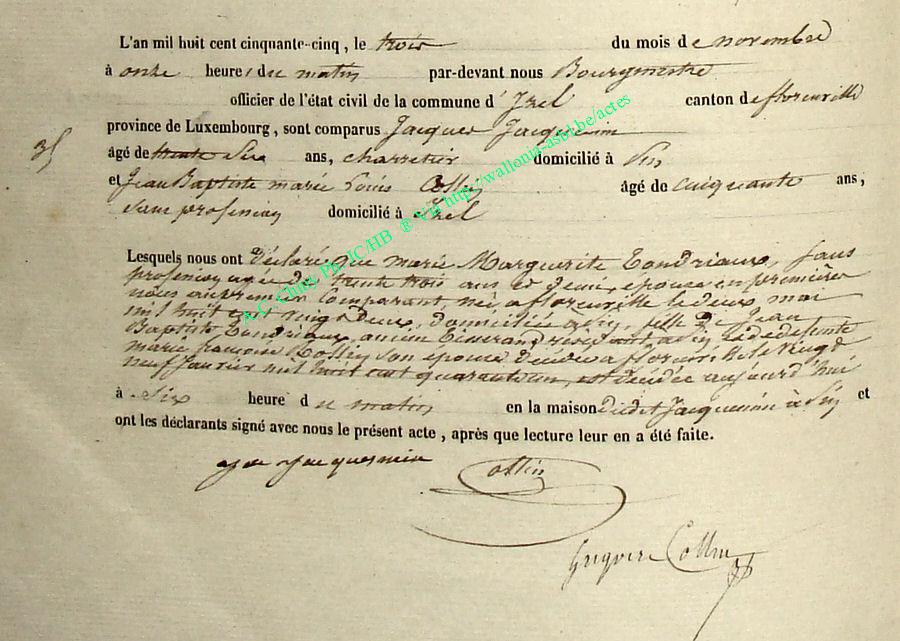 L'an mil huit cent cinquante-cinq, le trois du mois de novembre
à onze heures du matin par-devant nous Bourgmestre
officier de l'état civil de la commune d'Izel canton de florenville
province de Luxembourg, sont comparus Jacques Jacquemin
35
âgé de trente six ans, charretier domicilié à Pin
et Jean Baptiste marie Louis Collin âgé de cinquante ans,
sans profession domicilié à Izel
Lesquels nous ont déclaré que marie Marguerite Tondriaux, sans
profession agée de trente trois ans et demi, épouse en premières
noces au premier Comparant, née a florenville le deux mai
mil huit cent vingt deux, domiciliée a Pin, fille de Jean
Baptiste Tondriaux, ancien résidant a Pin et de defunte
marie son épouse décédée a florenville le vingt
neuf Janvier mil huit cent quarante un, est décédée aujourd'hui
à six heures du matin en la maison dudit Jacquemin à Pin et
ont les déclarants signé avec nous le présent acte, après que lecture leur en a été faite.
Jacquemin
Collin
Collin
A.C. Chiny, PR-JC/HB ® Via http://wallonia-asbl.be/actes